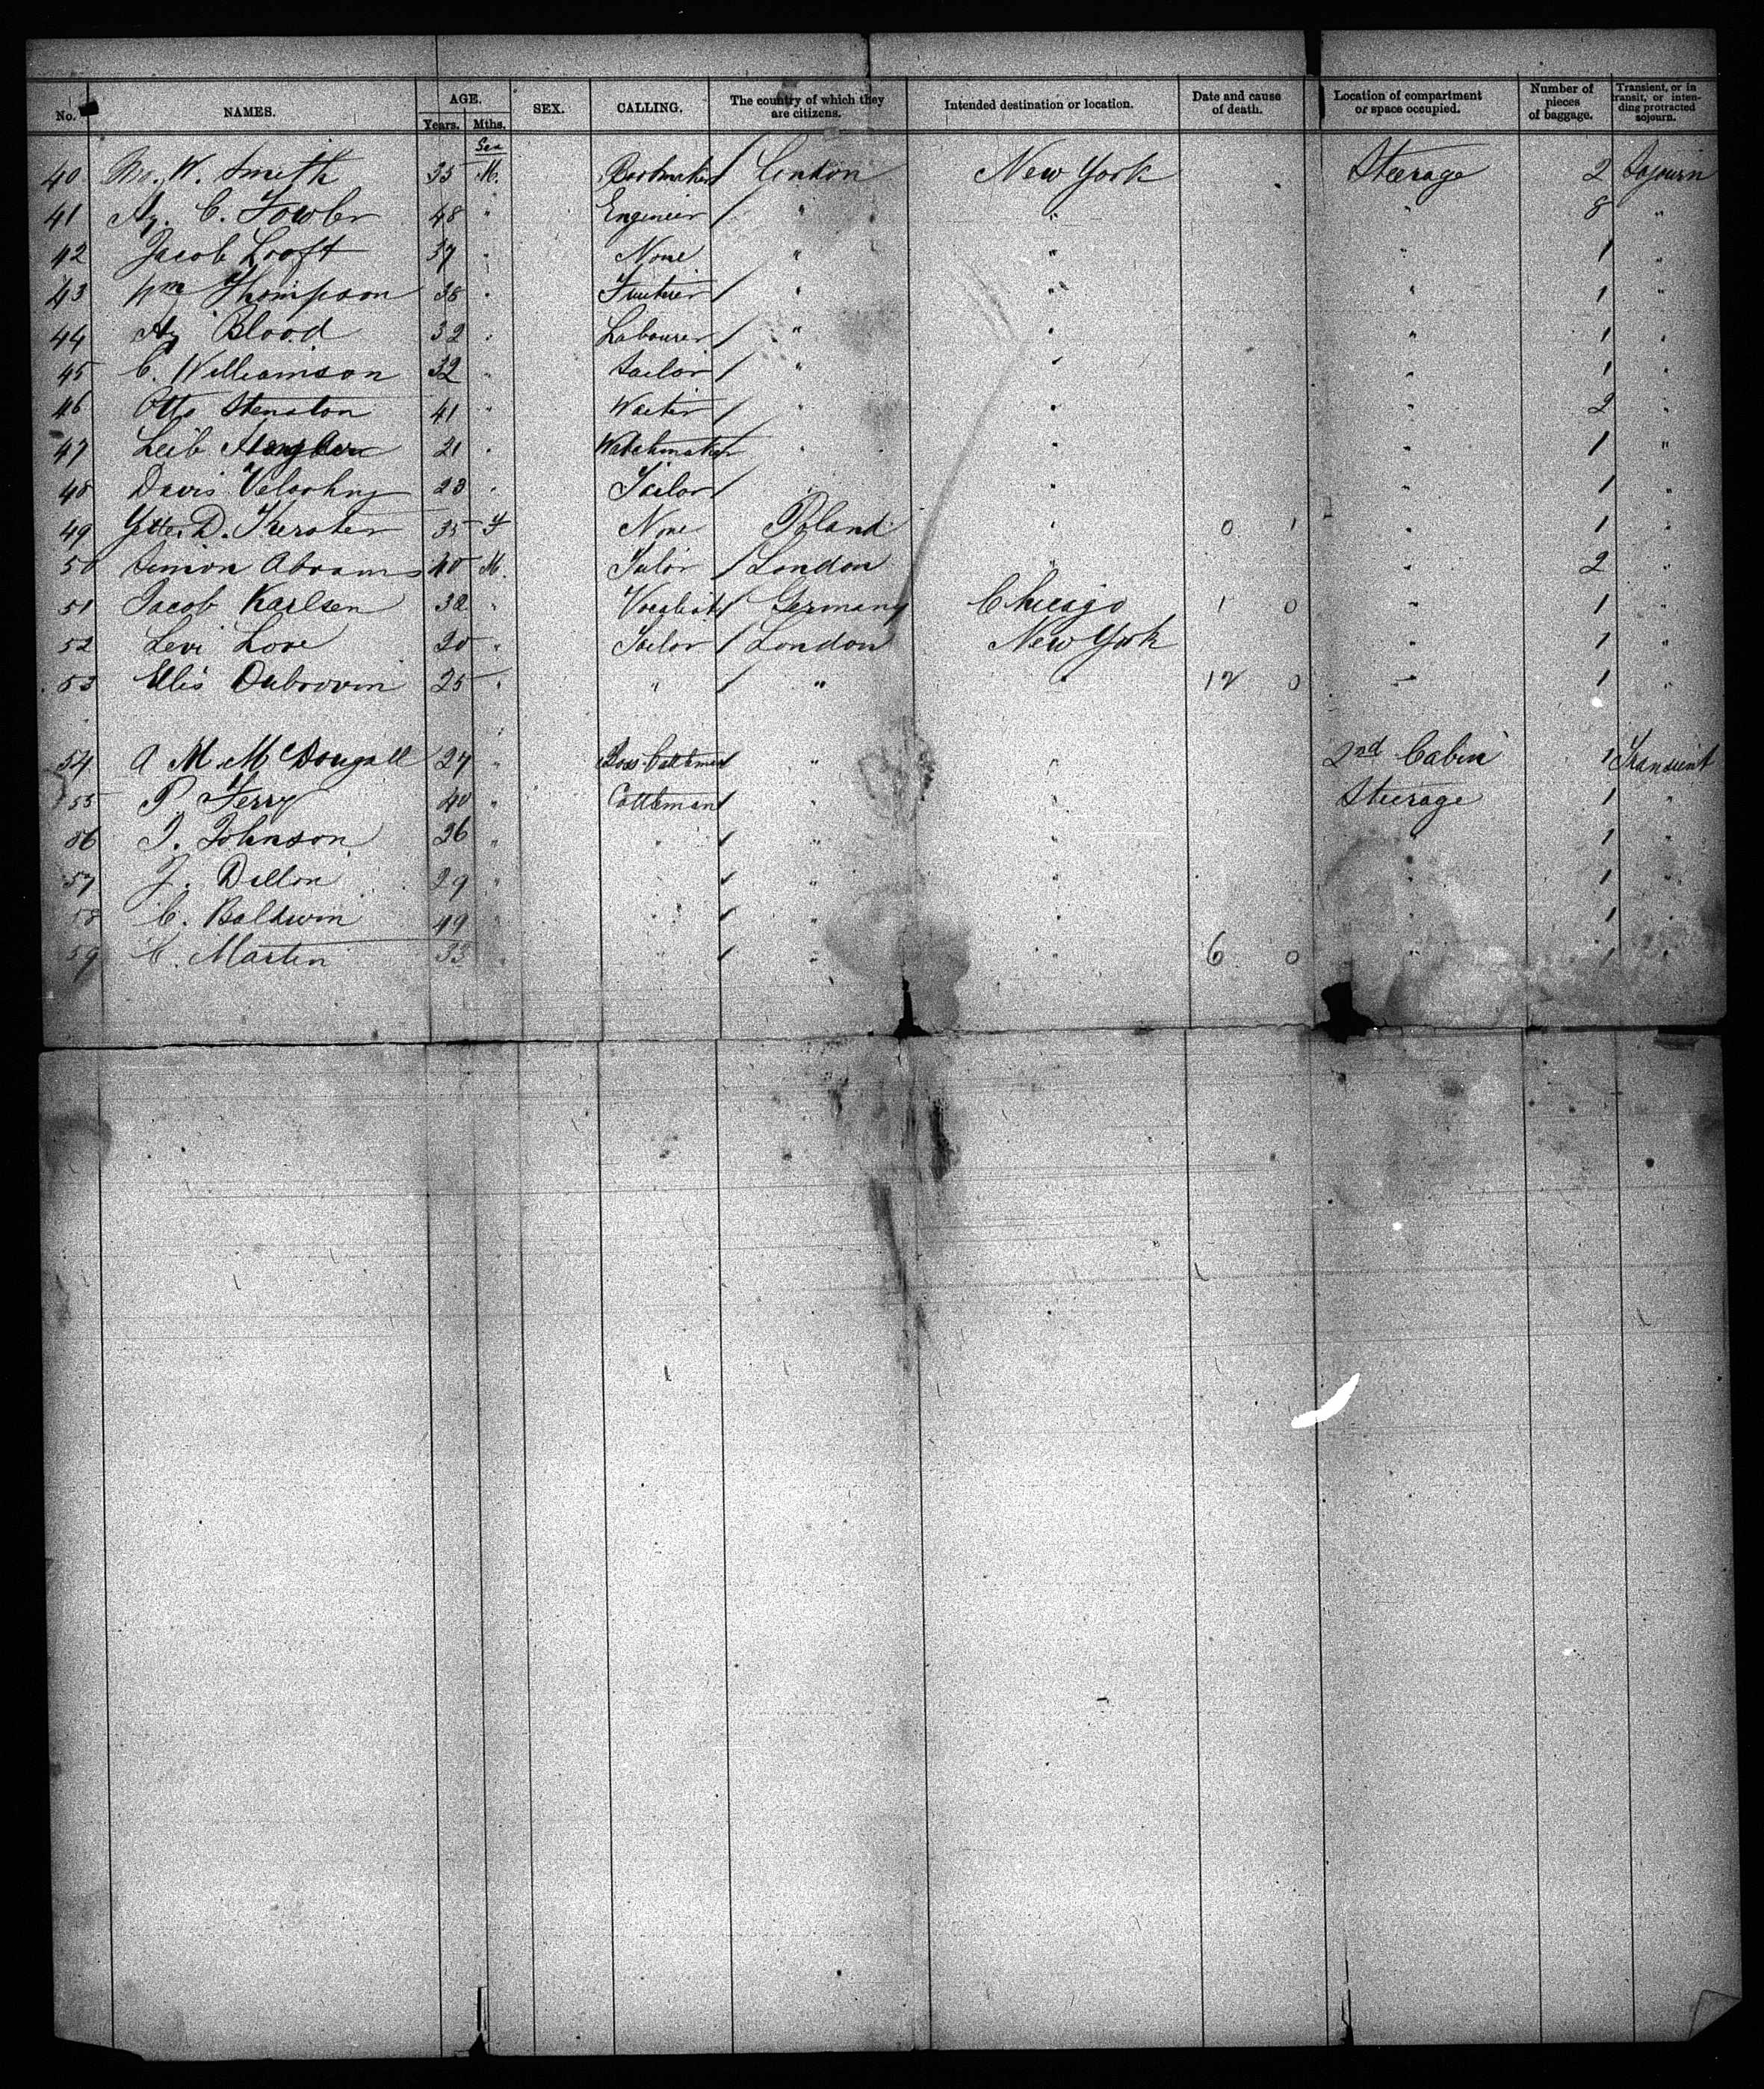 No. NAMES. AGE. Years. Mths. SEX. CALLING. The country of which they are citizens. Intended destination or location. Date and cause of death. Location of compartment or space occupied. Number of pieces of baggage. Transient, or in transit, or intending protracted sojourn.
Sex
40 W. Smith 35 M. / London New York Steerage 2 Sojourn
41 Hy. C. Fowler 48 " Engineer / " " " 8 "
42 Jacob Looft 37 " None " " " 1 "
43 Wm Thompson 38 " Fruiterer / " " " 1 "
44 Hy Blood 32 " Labourer / " " " 1 "
45 C. Williamson 32 " Sailor / " " " 1 "
46 Otto Stenston 41 " Waiter / " " " 2 "
47 Leib 21 " Watchmaker " " " 1 "
48 Davis 23 " Tailor / " " " 1 "
49 D. 35 F None Poland " 0 1 " 1 "
50 Simon Abrams 40 M. Tailor / London " " 2 "
51 Jacob Karlsen 32 " Vocalist / Germany Chicago 1 0 " 1 "
52 Levi Love 20 " Tailor / London New York " 1 "
53 Ellis Dubrovin 25 " " / " " 12 0 " 1 "
54 A M. McDougall 27 " Boss Cattleman / " " 2nd Cabin 1 Transient
55 P. Ferry 40 " Cattleman / " " Steerage 1 "
56 J. Johnson 26 " " / " " " 1 "
57 J. Dillon 29 " " / " " " 1 "
58 C. Baldwin 49 " " / " " " 1 "
59 C. Martin 33 " " / " " 6 0 " 1 "